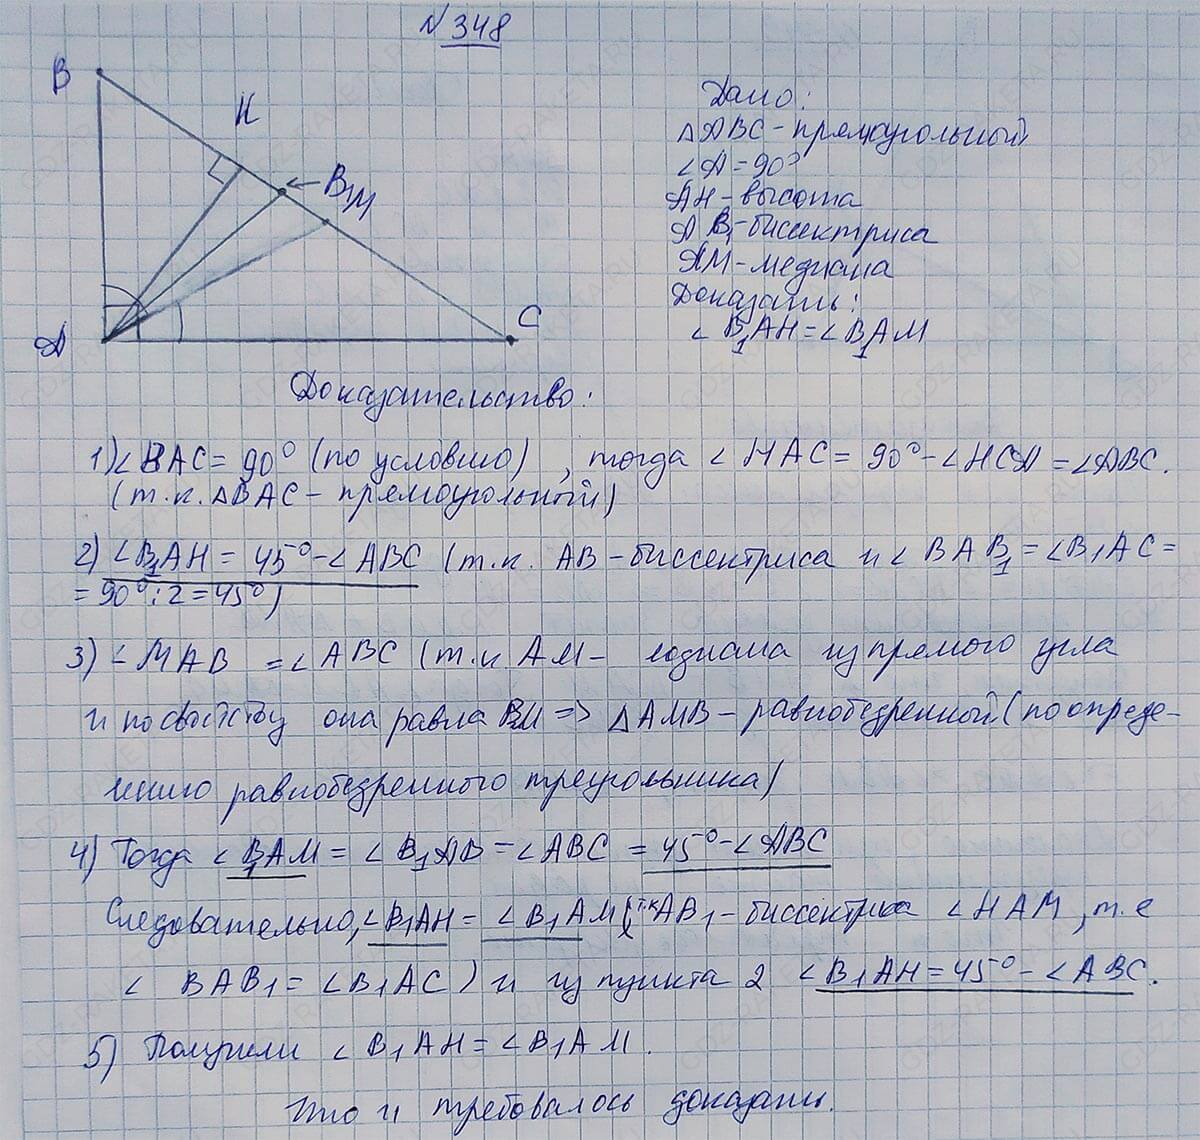 N 348
B
H
B₁
M
A
C
Дано:
△ABC - прямоугольный
∠A = 90°
AH - высота
AB₁ - биссектриса
AM - медиана
Доказать:
∠B₁AH = ∠B₁AM
Доказательство:
1) ∠BAC = 90° (по условию), тогда ∠HAC = 90° - ∠HCA = ∠ABC.
(т.к. △BAC - прямоугольный)
2) ∠B₁AH = 45° - ∠ABC (т.к. AB - биссектриса и ∠BAB₁ = ∠B₁AC =
= 90° : 2 = 45°)
3) ∠MAB = ∠ABC (т.к. AM - медиана из прямого угла
и по свойству она равна BM => △AMB - равнобедренный (по опреде-
лению равнобедренного треугольника)
4) Тогда ∠B₁AM = ∠B₁AB - ∠ABC = 45° - ∠ABC
Следовательно, ∠B₁AH = ∠B₁AM (тк AB₁ - биссектриса ∠HAM, т.е
∠BAB₁ = ∠B₁AC) и из пункта 2 ∠B₁AH = 45° - ∠ABC.
5) Получили ∠B₁AH = ∠B₁AM.
Что и требовалось доказать.